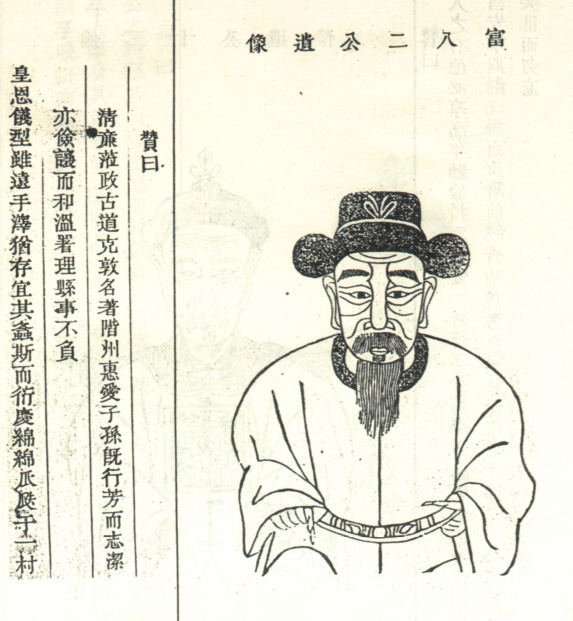 富八二公遺像
贊曰
清廉蒞政古道克敦名著階州惠愛子孫既行芳而志潔
亦儉讓而和溫署理縣事不負
皇恩儀型雖遠手澤猶存宜其螽斯而衍慶綿綿瓜瓞于一村